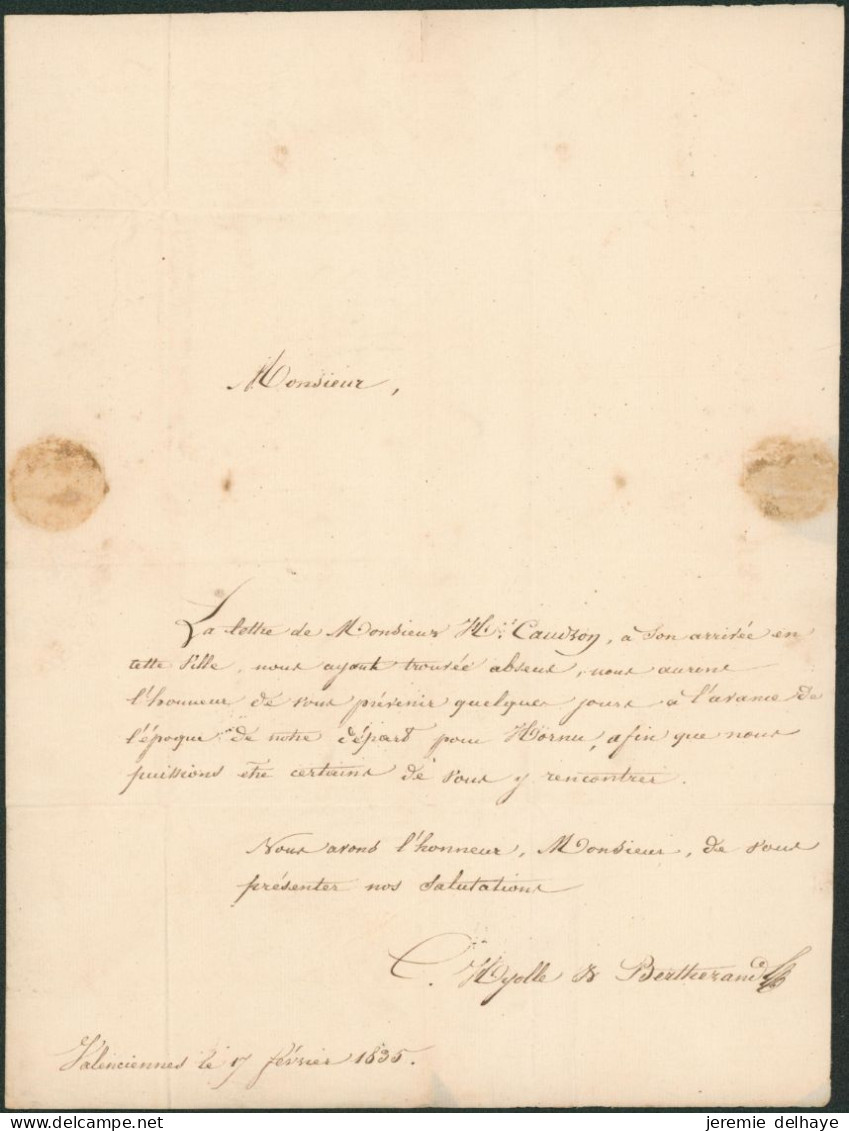 Monsieur,
La lettre de Monsieur Hri Caudron, à son arrivée en
cette Ville, nous ayant trouvés absens, nous aurons
l'honneur de vous prévenir quelques jours à l'avance de
l'époque de notre départ pour Hörnu, afin que nous
puissions être certains de vous y rencontrer.
Nous avons l'honneur, Monsieur, de vous
présenter nos Salutations
C. Hyolle & Bertherand
Valenciennes le 7 février 1835.
www.delcampe.net
jeremie delhaye